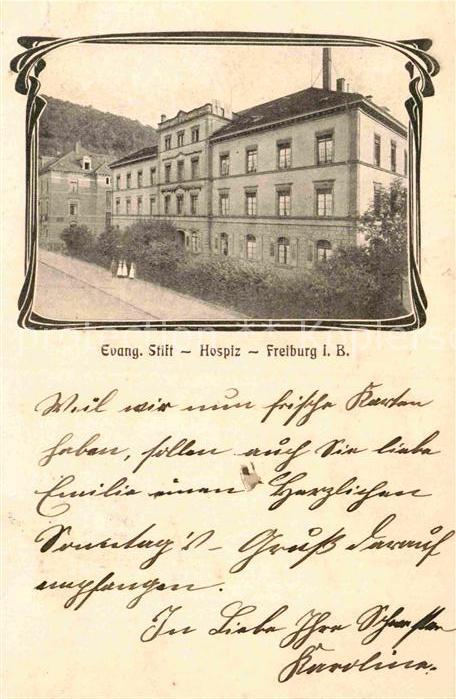 Evang. Stift – Hospiz – Freiburg i. B.
Weil wir nun frische Karten
haben, sollen auch Sie liebe
Emilie einen Herzlichen
Sonntag's – Gruß darauf
empfangen.
In Liebe Ihre Schwester
Karoline.